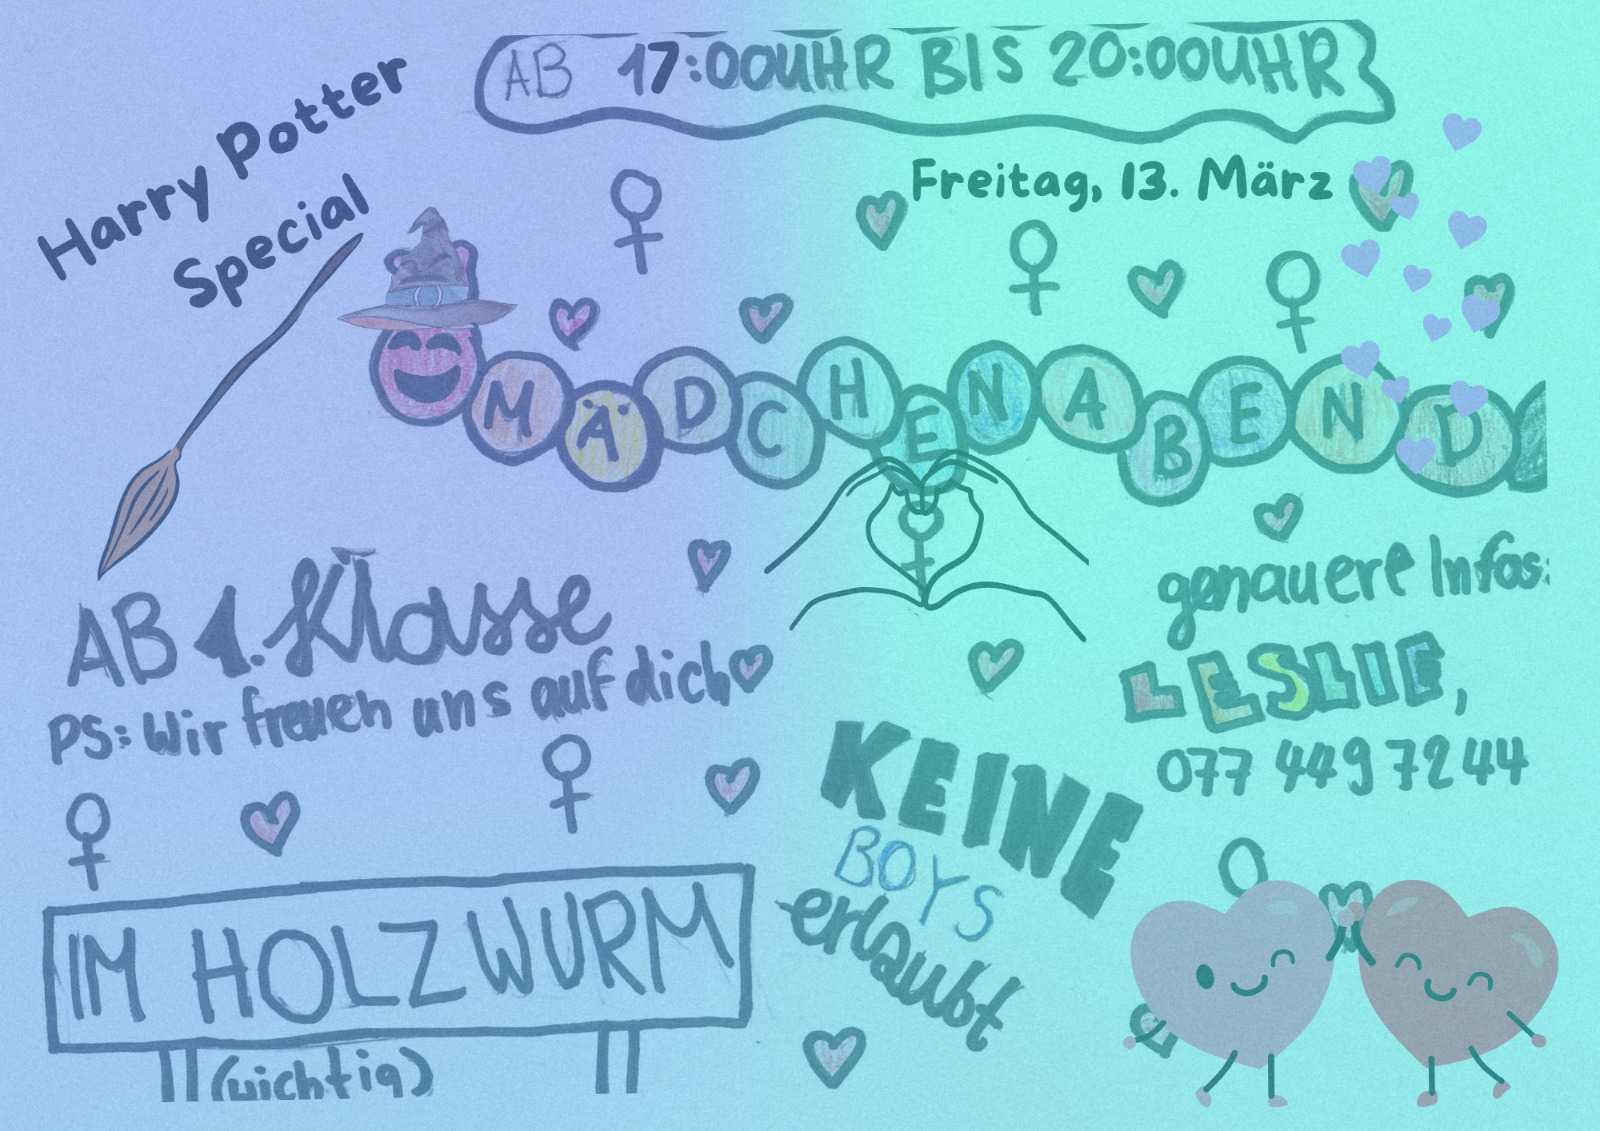 Harry Potter
Special
AB 17:00UHR BIS 20:00UHR
Freitag, 13. März
MÄDCHENABEND
AB 1. Klasse
PS: Wir freuen uns auf dich
genauere Infos:
LESLIE,
077 449 72 44
KEINE
BOYS
erlaubt
IM HOLZWURM
(wichtig)